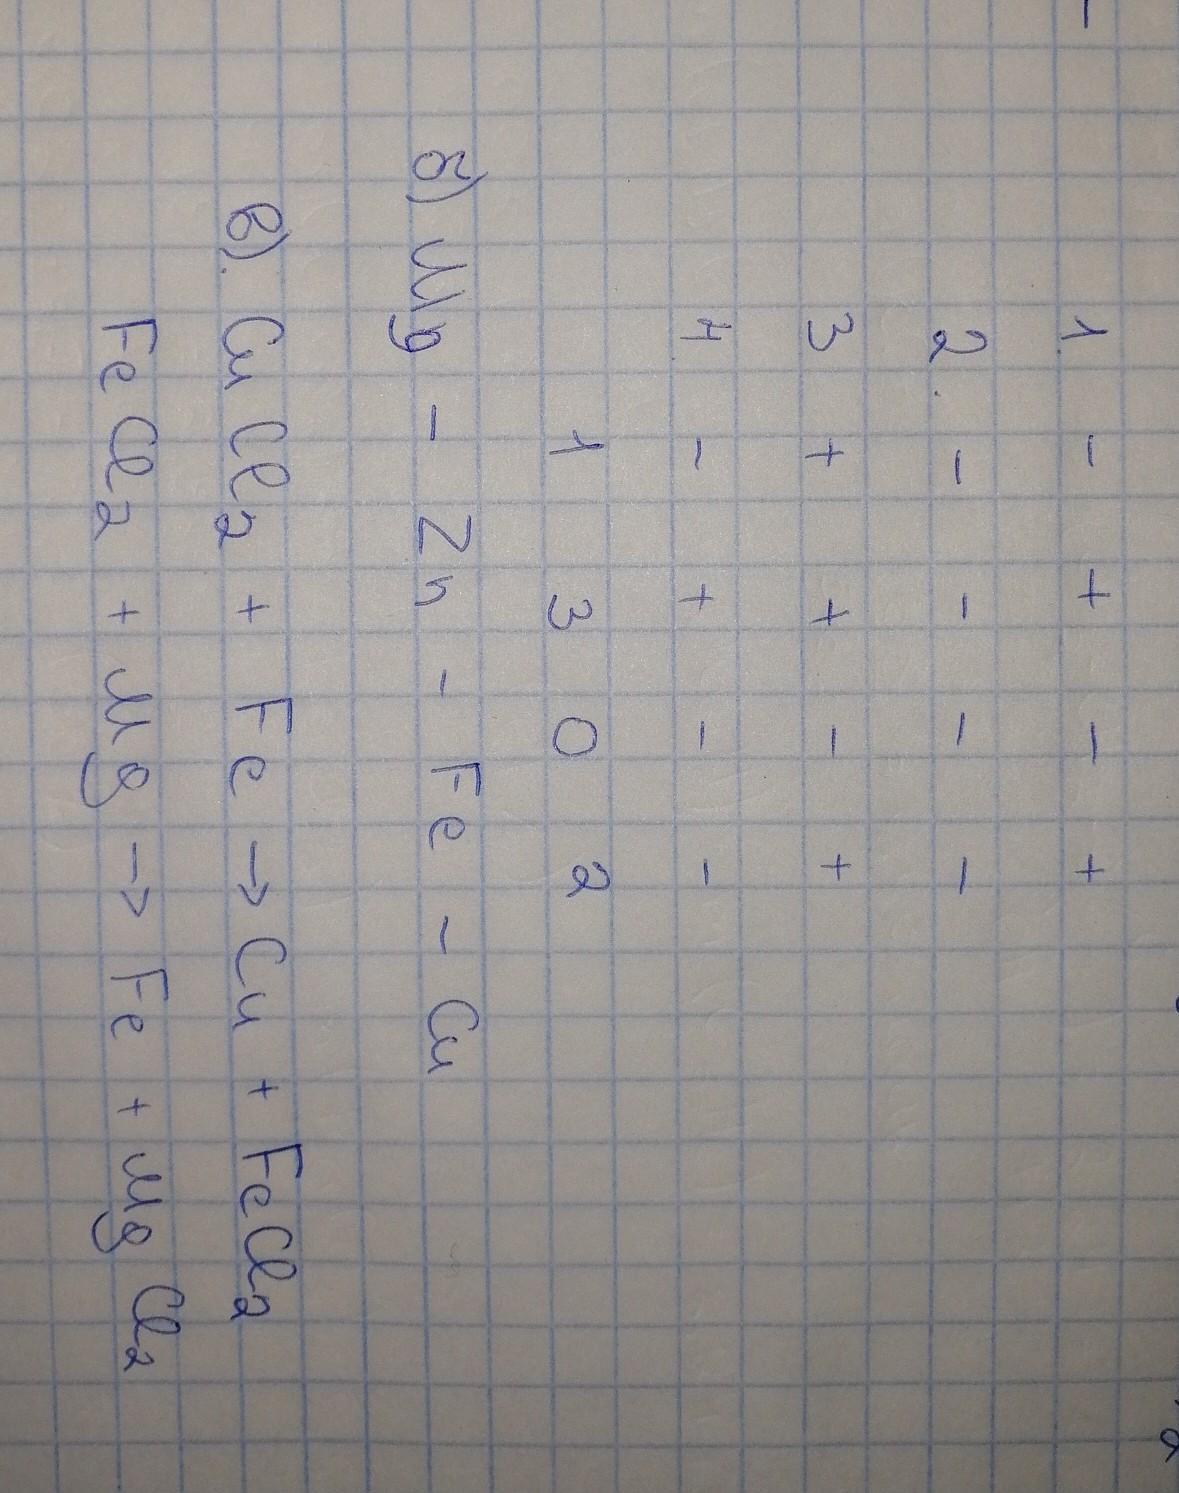 1. - + - +
2. - - - -
3 + + - +
4. - + - -
1 3 0 2
б) Mg - Zn - Fe - Cu
в). CuCl2 + Fe → Cu + FeCl2
FeCl2 + Mg → Fe + MgCl2